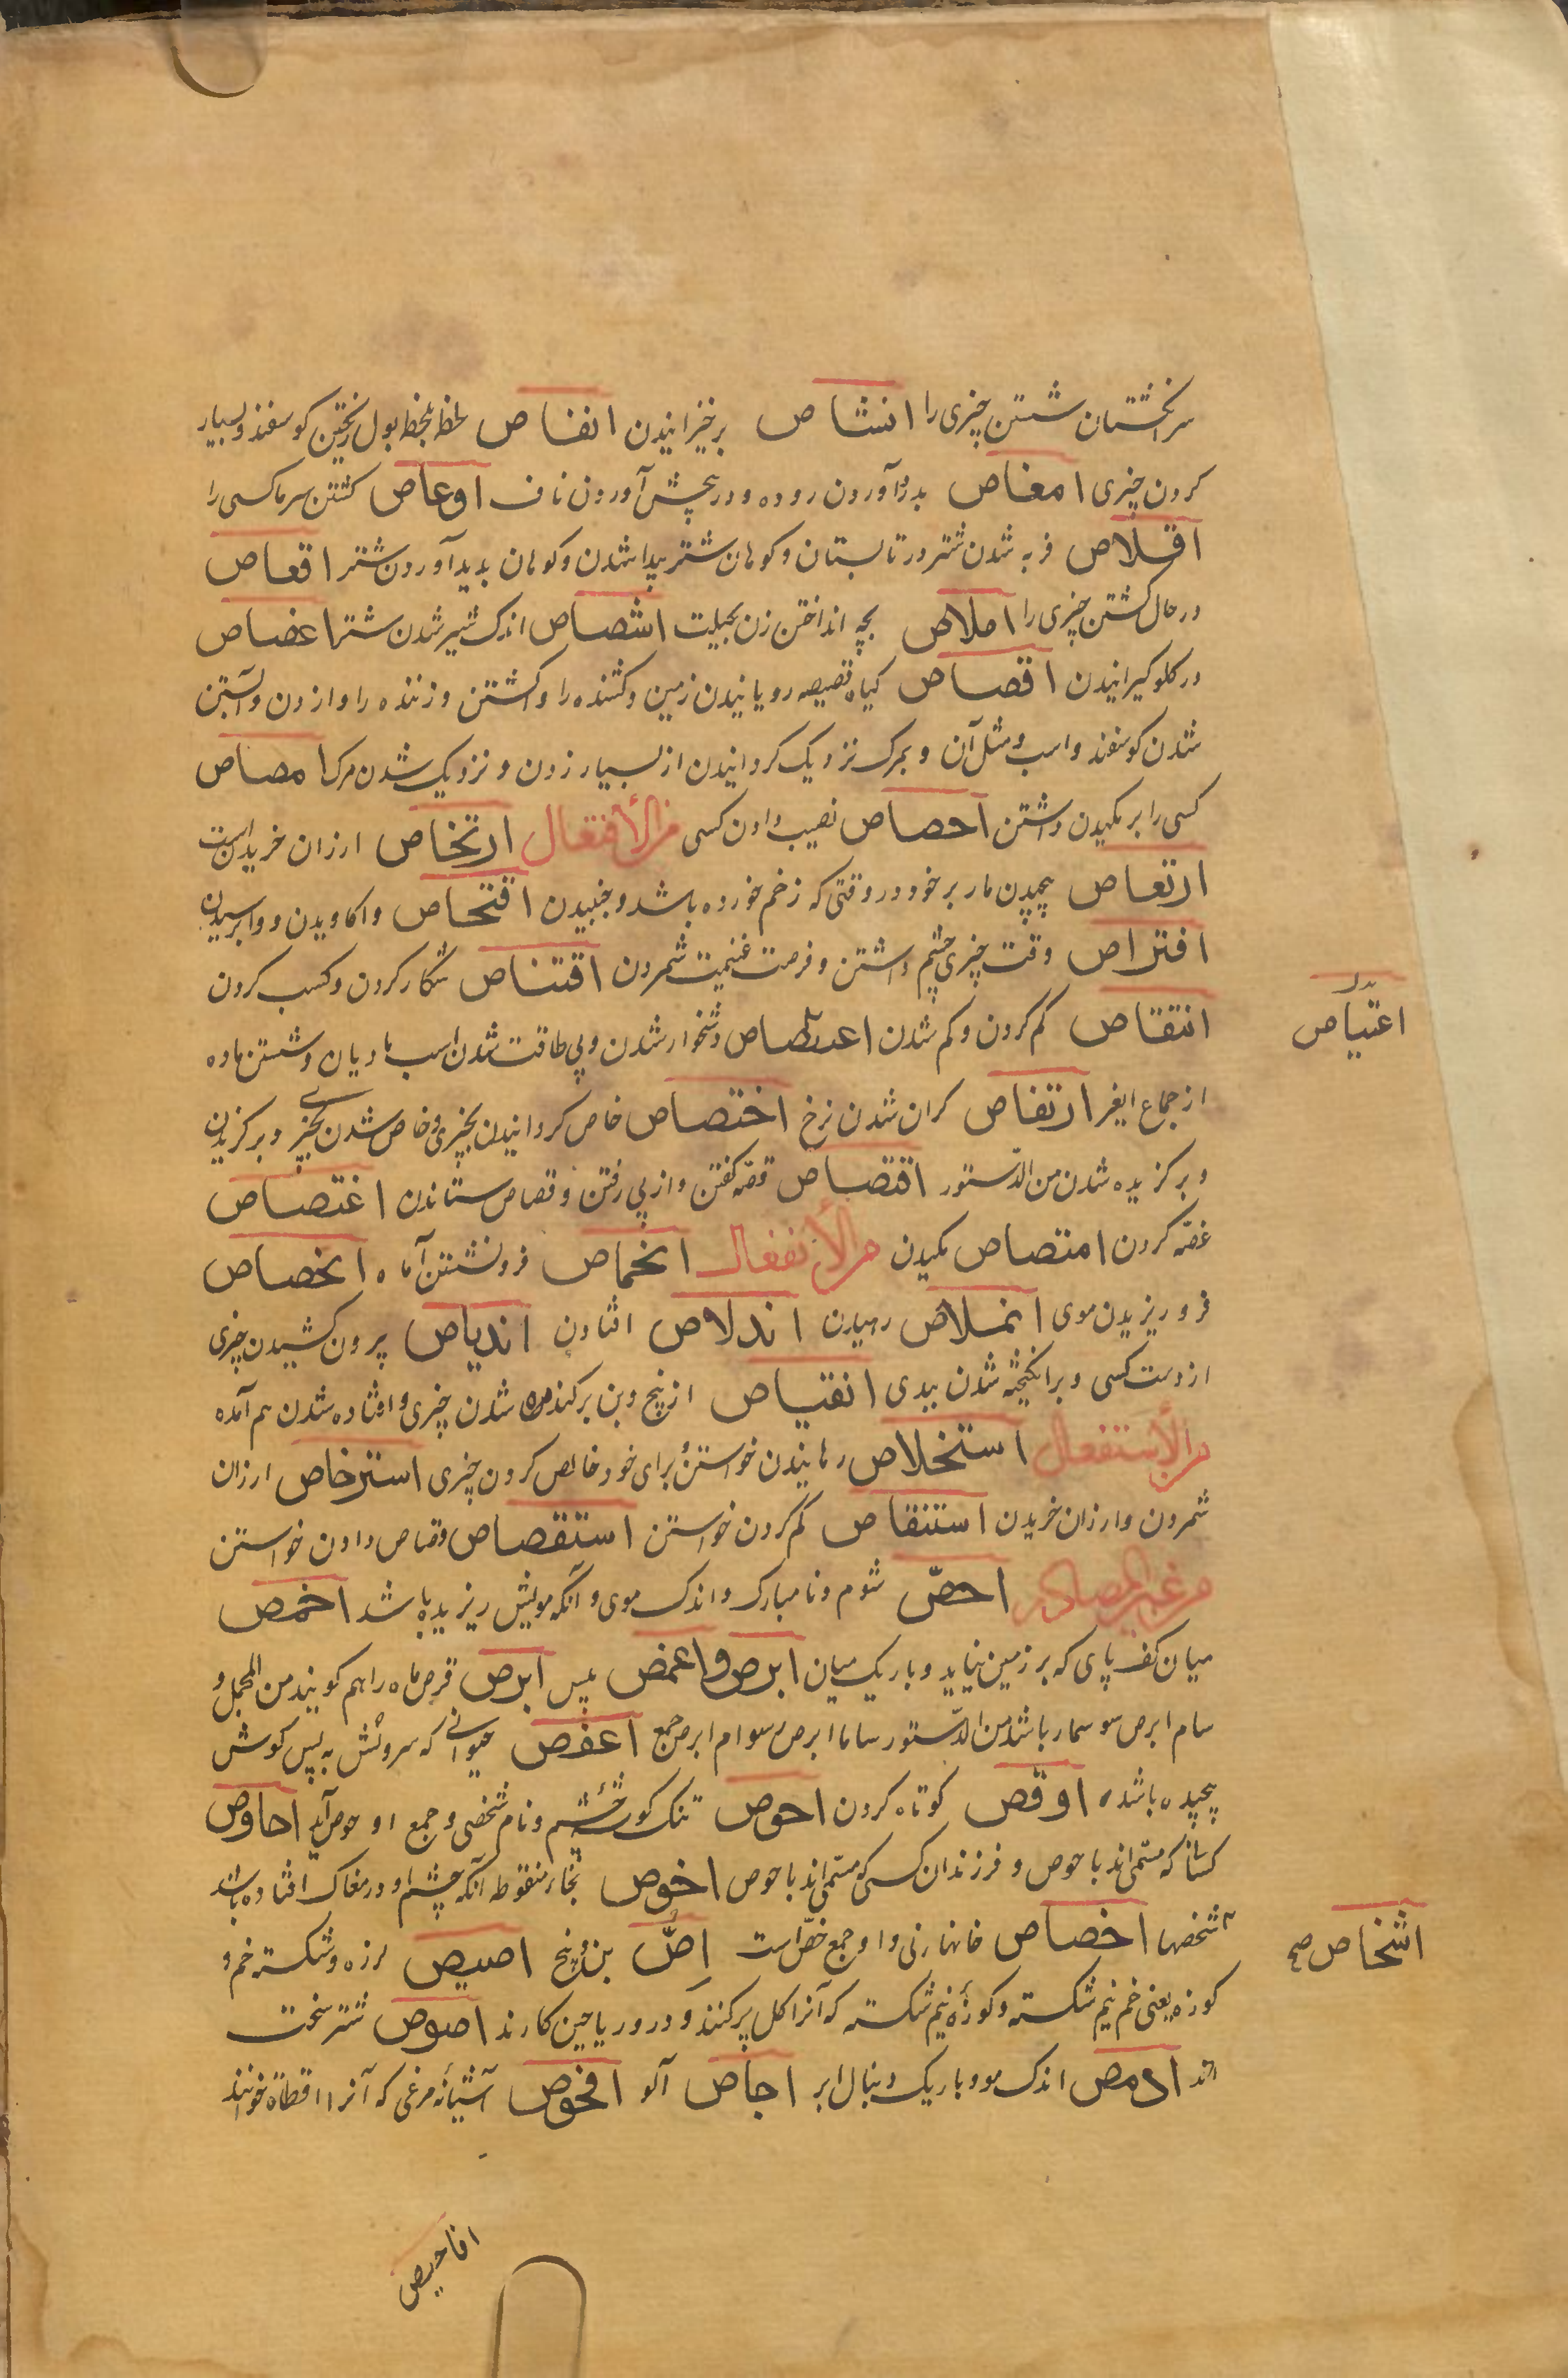 سر انکشتان شستن چیزی را انشاص برخیزانیدن انفاص لحظه بلحظه بول ریختن کوسفند و بسیار
کردن چیزی امغاص بدرد آوردن روده و در پیچش آوردن ناف اوعاص کشتن سرما کسی را
اقلاص فربه شدن شتر در تابستان و کوهان شتر پیدا شدن و کوهان پدید آوردن شتر اقعاص
در حال کشتن چیزی را املاص بچه انداختن زن بحیلت اشصاص اندک شیر شدن شتر اغصاص
در کلو کیرانیدن اقصاص کیاه قصیصه رویانیدن زمین و کشنده را وا کشتن و زننده را وا زدن و آبستن
شدن کوسفند و اسب و مثل آن و بمرک نزدیک کردانیدن از بسیار زدن و نزدیک شدن مرک امصاص
کسی را بر مکیدن داشتن احصاص نصیب دادن کسی من الأفتعال ارتخاص ارزان خریدن
ارتعاص پیچیدن مار بر خود در وقتی که زخم خورده باشد و جنبیدن افتحاص واکاویدن و وابرسیدن
افتراص وقت چیزی چشم داشتن و فرصت غنیمت شمردن اقتناص شکار کردن و کسب کردن
انتقاص کم کردن و کم شدن اعتصاص دشخوار شدن و بی طاقت شدن اسب مادیان و شستن ماده
اعتیاص بدل
از جماع ایغر ارتفاص کران شدن نرخ اختصاص خاص کردانیدن بچیزی و خاص شدن بچیزی و برکزیدن
و برکزیده شدن من الدستور اقتصاص قصّه کفتن و از پی رفتن و قصاص ستاندن اغتصاص
غصّه کردن امتصاص مکیدن من الأنفعال انخماص فرو نشستن آماه انحصاص
فرو ریزیدن موی انملاص رهیدن اندلاص افتادن اندیاص بیرون کشیدن چیزی
از دست کسی و برانکیخته شدن ببدی انقیاص از بیخ و بن برکنده شدن چیزی و افتاده شدن هم آمده
من الأستفعال استخلاص رهانیدن خواستن و برای خود خالص کردن چیزی استرخاص ارزان
شمردن و ارزان خریدن استنقاص کم کردن خواستن استقصاص قصاص دادن خواستن
من غیر المصادر احصّ شوم و نامبارک و اندک موی و آنکه مویش ریزیده باشد اخمص
میان کف پای که بر زمین نیاید و باریک میان ابرص و اعمص پیس ابرص قرص ماه را هم کویند من المجمل و
سام ابرص سوسمار باشد من الدستور ساما ابرص سوام ابرص جمع اعقص حیوانی که سرونش به پس کوش
پیچیده باشد اوقص کوتاه کردن احوص تنک کوشه چشم و نام شخصی و جمع او حوص آید احاوص
کسانی که متسمّی اند باحوص و فرزندان کسی که متسمّی اند باحوص اخوص بخاء منقوطه آنکه چشم او در مغاک افتاده باشد
شخصها اخصاص خانهای نی و او جمع خصّ است اِصّ بن و بیخ اصیص لرزه و شکسته خم و
اشخاص صح
کوزه یعنی خم نیم شکسته و کوزۀ نیم شکسته که آنرا کل پر کنند و در او ریاحین کارند اصوص شتر سخت
اند ادمص اندک مو و باریک دنبال ابر اجاص آلو افحوص آشیانۀ مرغی که آنرا قطاة خوانند
افاحیص